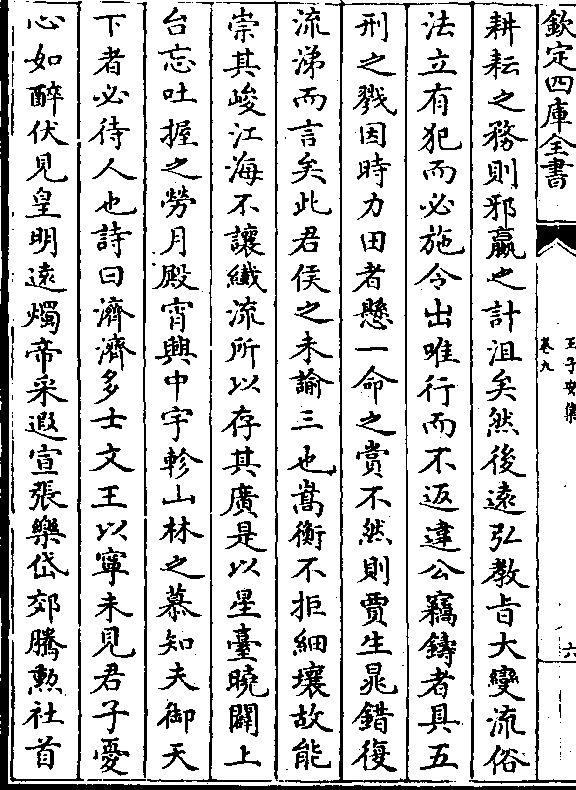 欽定四庫全書
王子安集
卷九
六
耕耘之務則邪贏之計沮矣然後遠弘教旨大變流俗
法立有犯而必施令出唯行而不返違公竊鑄者具五
刑之戮因時力田者懸一命之賞不然則賈生晁錯復
流涕而言矣此君侯之未諭三也嵩衡不拒細壤故能
崇其峻江海不讓纖流所以存其廣是以星臺曉闢上
台忘吐握之勞月殿宵興中宇軫山林之慕知夫御天
下者必待人也詩曰濟濟多士文王以寧未見君子憂
心如醉伏見皇明遠燭帝采遐宣張樂岱郊騰勲社首